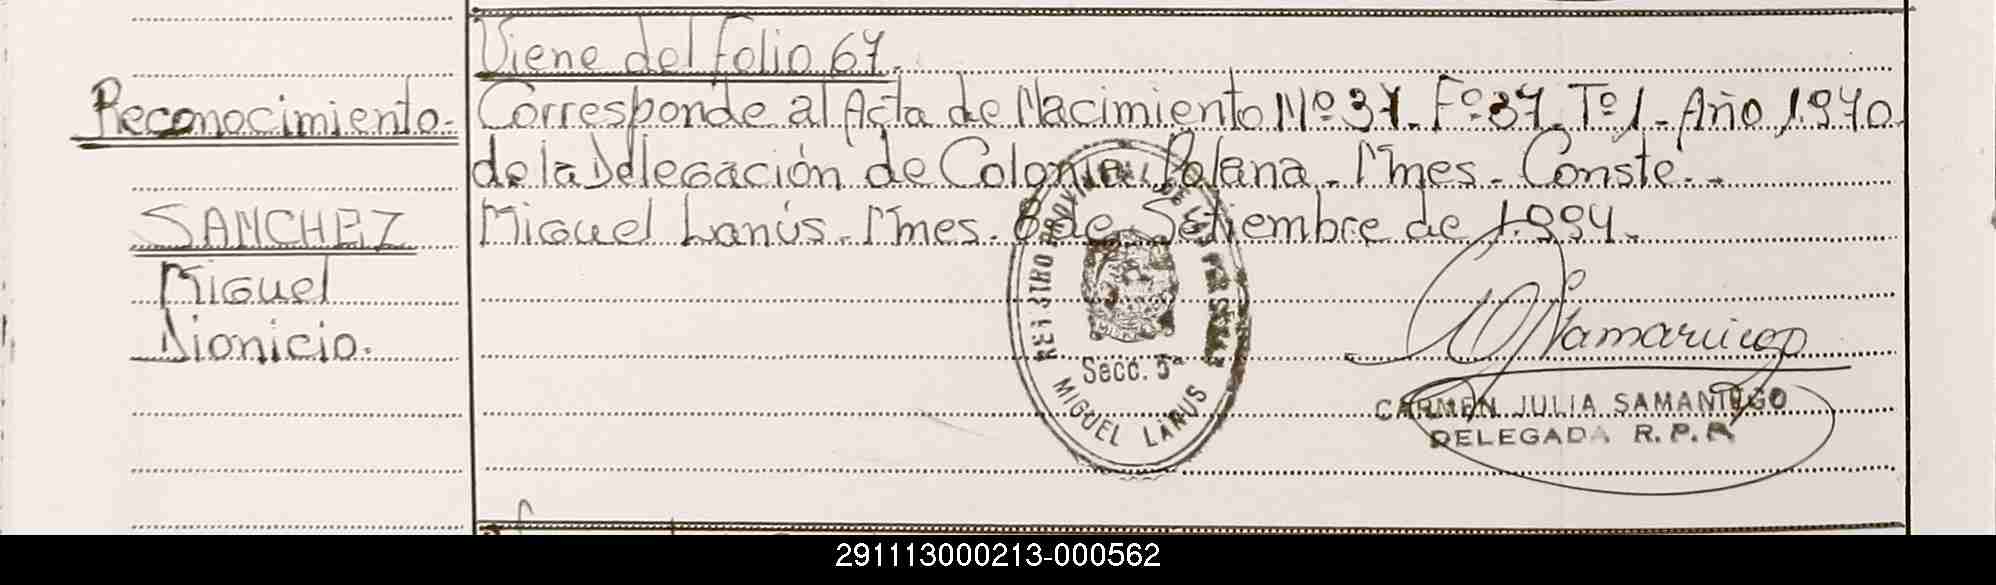 Viene del folio 67.
Reconocimiento.
Corresponde al Acta de Nacimiento Nº 37. Fº 37. Tº 1. Año 1.970.
de la Delegación de Colonia Polana. Mnes. Conste.
SANCHEZ
Miguel Lanús. Mnes. 8 de Setiembre de 1.994.
Miguel
Dionicio.
REGISTRO PROVINCIAL DE LAS PERSONAS
Secc. 5ª
MIGUEL LANUS
CARMEN JULIA SAMANIEGO
DELEGADA R. P. P.
291113000213-000562